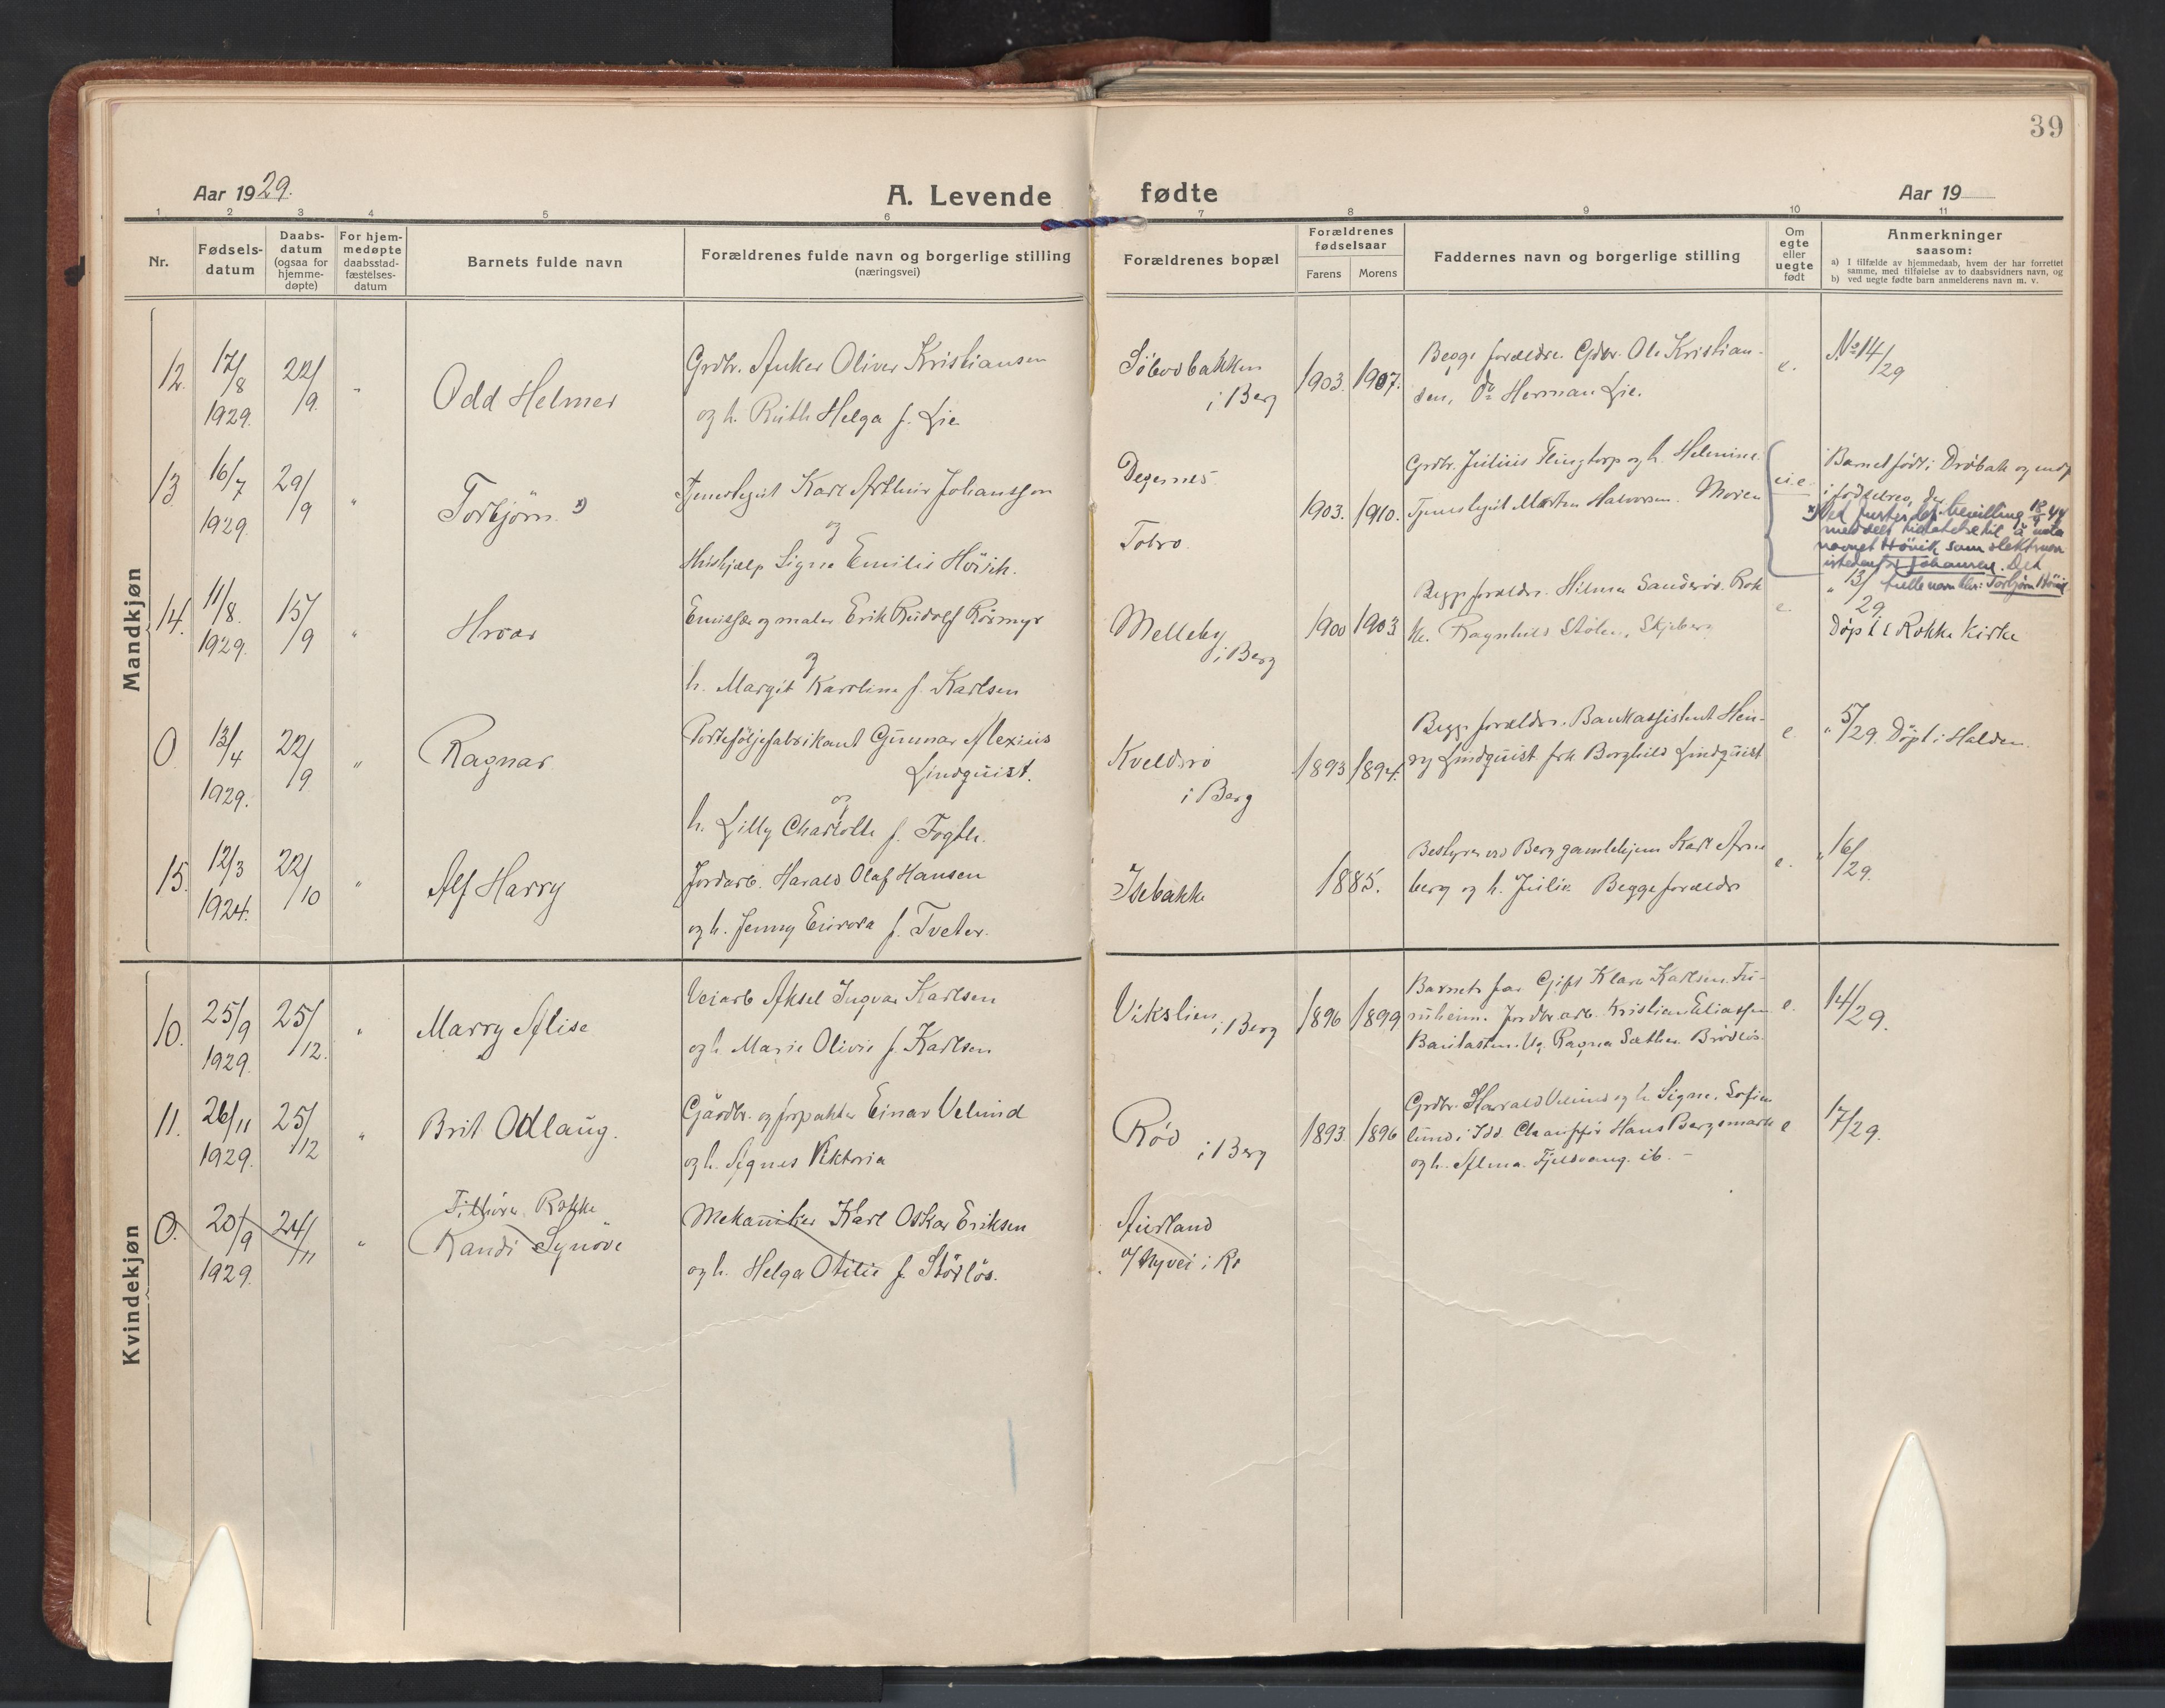 39
Aar 1929.
A. Levende fødte
Aar 19
1 2 3 4 5 6 7 8 9 10 11
Nr.
Fødsels-
datum
Daabs-
datum
(ogsaa for
hjemme-
døpte)
For hjem-
medøpte
daabsstad-
fæstelses-
datum
Barnets fulde navn
Forældrenes fulde navn og borgerlige stilling
(næringsvei)
Forældrenes bopæl
Forældrenes
fødselsaar
Farens Morens
Faddernes navn og borgerlige stilling
Om
egte
eller
uegte
født
Anmerkninger
saasom:
a) I tilfælde av hjemmedaab, hvem der har forrettet
samme, med tilføielse av to daabsvidners navn, og
b) ved uegte fødte barn anmelderens navn m. v.
Mandkjøn
12. 17/8 1929. 22/9. "
Odd Helmer
Grdbr. Anker Oliver Kristiansen
og h. Ruth Helga f. Lie
i Berg
1903. 1907.
Begge forældre. Gdbr. Ole Kristian-
sen, do Herman Lie.
e.
No 14/29
13 16/7 1929. 29/9 "
Torbjörn x)
Tjenestegut Karl Arthur Johansson
og
Signe Emilie
Degernes
1903. 1910.
Grdbr. Julius og h. Helmine.
Tjenestegut Morten Halvorsen. Moren
u.e.
Barnet født i Drøbak og
i fødselsreg. der
x) Ved bevilling 18/9 44
navnet Hövik som slektsnavn
istedenfor Johansen. Det
fulle navn blir: Torbjörn Hövik
14. 11/8. 1929. 15/9 "
Hroar
og maler Erik Rudolf Rörmyr
og
h. Margit Karoline f. Karlsen
Melleby
i Berg
1900 1903
Begge forældre. Hilma Sanderöd. Rok
ke. Ragnhild Stölen, Skjeberg
e.
" 13/29.
Döpt i Rokke Kirke
0 13/4 1929. 22/9 "
Ragnar
Porteføljefabrikant Gunnar Alexius
Lindquist.
og
h. Lilly Charlotte f. Fogth.
Kveldsro
i Berg
1893 1894.
Begge forældre. Bankassistent Hen-
ry Lindquist frk Borghild Lindquist
e.
" 5/29. Döpt i Halden.
15. 12/3 1924. 22/10 "
Alf Harry
Jordarb. Harald Olaf Hansen
og h. Jenny f. Tveter.
Isebakke
1885.
Bestyrer ved Berg gamlehjem Karl Arne
berg og h. Julie Begge forældre
e.
" 16/29.
Kvindekjøn
10. 25/9 1929. 25/12. "
Marry Alise
Veiarb Aksel Ingvar Karlsen
og h. Marie Olivie f. Karlsen
Vikslien i Berg
1896 1899
Barnets far Gift Klara Karlsen. Fu-
ruheim. Jordbr.arb. Kristian Eliassen
Ug. Ragna Sæther.
e.
14/29.
11. 26/11 1929. 25/12 "
Brit Odlaug.
Gårdbr. og forpakter Einar Velund
og h. Agnes Viktoria
Rød i Berg
1893. 1896
Grdbr. Harald Velund og h. Signe, Sofien
lund i Idd. Chauffør Hans Bergsmark
og h. Alma. Fjeldvang. ib. -
e
17/29.
0. 20/9 1929. 24/11 "
Tilhörer Rokke
Randi Synöve
Mekaniker Karl Oskar Eriksen
og h. Helga Otilie f. Störlös.
Aurland